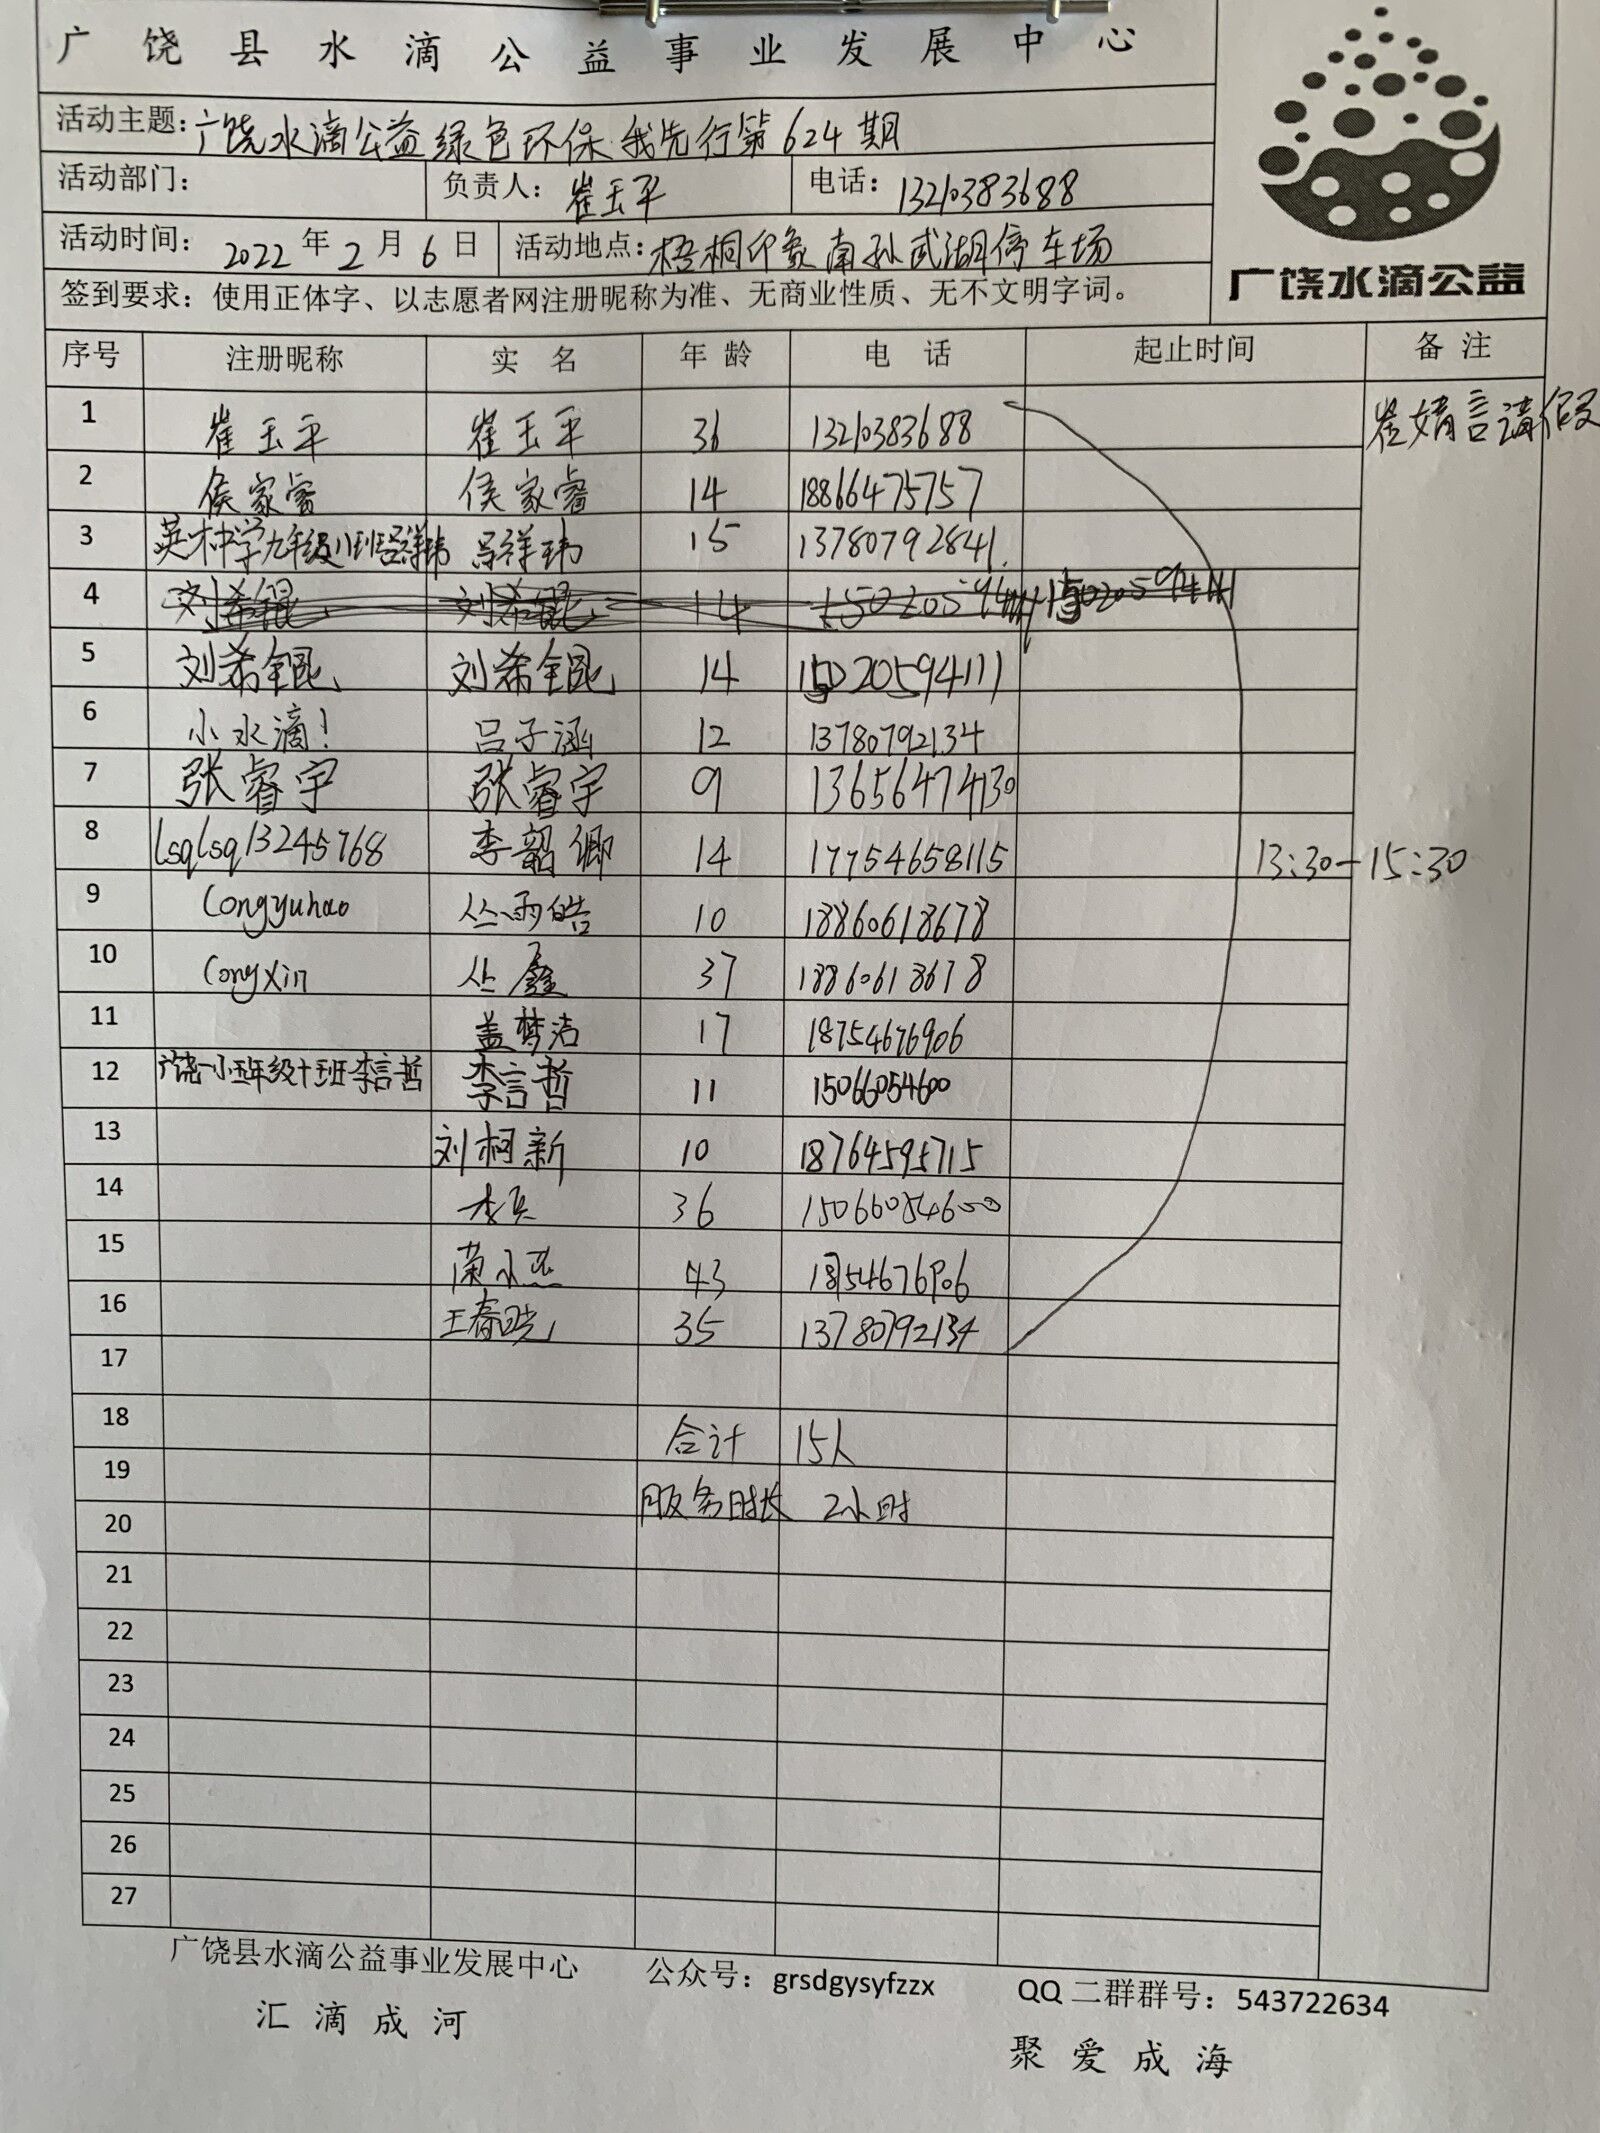 广饶县水滴公益事业发展中心
活动主题:广饶水滴公益绿色环保.我先行第624期
活动部门: 负责人: 崔玉平 电话: 13210383688
活动时间: 2022年2月6日 活动地点: 梧桐印象南孙武湖停车场
广饶水滴公益
签到要求:使用正体字、以志愿者网注册昵称为准、无商业性质、无不文明字词。
序号 注册昵称 实名 年龄 电话 起止时间 备注
1 崔玉平 崔玉平 36 13210383688 崔婧言请假
2 侯家睿 侯家睿 14 18866475757
3 英才中学九年级八班吕祥玮 吕祥玮 15 13780792841
4 刘希锟 刘希锟 14
5 刘希锟 刘希锟 14 15020594111
6 小水滴! 吕子涵 12 13780792134
7 张睿宇 张睿宇 9 13656474130
8 lsqlsq13245768 李韶卿 14 17754658115 13:30-15:30
9 Congyuhao 丛雨皓 10 18860618678
10 Congxin 丛鑫 37 18860618678
11 盖梦洁 17 18754676906
12 广饶一小五年级十班李言哲 李言哲 11 15066054600
13 刘柯新 10 18764595715
14 36 15066054600
15 43
16 王春晓 35 13780792134
17
18 合计 15人
19 服务时长 2小时
20
21
22
23
24
25
26
27
广饶县水滴公益事业发展中心 公众号:grsdgysyfzzx QQ二群群号:543722634
汇滴成河
聚爱成海